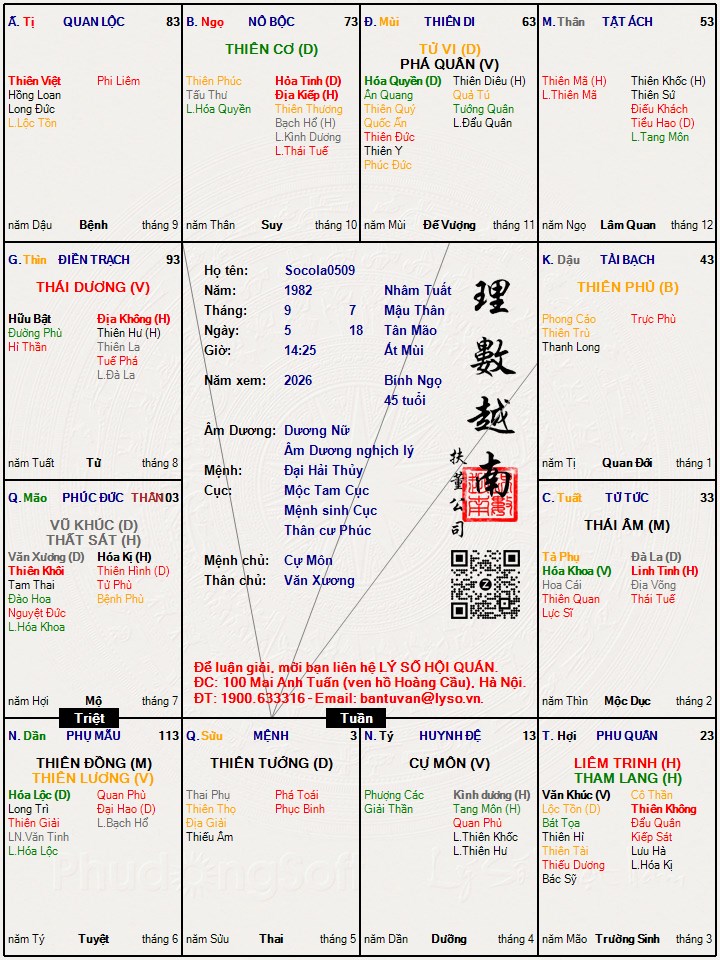 Ấ. Tị QUAN LỘC 83
Thiên Việt
Hồng Loan
Long Đức
L.Lộc Tồn
Phi Liêm
năm Dậu Bệnh tháng 9
B. Ngọ NÔ BỘC 73
THIÊN CƠ (D)
Thiên Phúc
Tấu Thư
L.Hóa Quyền
Hỏa Tinh (D)
Địa Kiếp (H)
Thiên Thương
Bạch Hổ (H)
L.Kình Dương
L.Thái Tuế
năm Thân Suy tháng 10
Đ. Mùi THIÊN DI 63
TỬ VI (D)
PHÁ QUÂN (V)
Hóa Quyền (D)
Ân Quang
Thiên Quý
Quốc Ấn
Thiên Đức
Thiên Y
Phúc Đức
Thiên Diêu (H)
Quả Tú
Tướng Quân
L.Đẩu Quân
năm Mùi Đế Vượng tháng 11
M. Thân TẬT ÁCH 53
Thiên Mã (H)
L.Thiên Mã
Thiên Khốc (H)
Thiên Sứ
Điếu Khách
Tiểu Hao (D)
L.Tang Môn
năm Ngọ Lâm Quan tháng 12
G. Thìn ĐIỀN TRẠCH 93
THÁI DƯƠNG (V)
Hữu Bật
Đường Phù
Hỉ Thần
Địa Không (H)
Thiên Hư (H)
Thiên La
Tuế Phá
L.Đà La
năm Tuất Tử tháng 8
Họ tên: Socola0509
Năm: 1982 Nhâm Tuất
Tháng: 9 7 Mậu Thân
Ngày: 5 18 Tân Mão
Giờ: 14:25 Ất Mùi
Năm xem: 2026 Bính Ngọ
45 tuổi
Âm Dương: Dương Nữ
Âm Dương nghịch lý
Mệnh: Đại Hải Thủy
Cục: Mộc Tam Cục
Mệnh sinh Cục
Thân cư Phúc
Mệnh chủ: Cự Môn
Thân chủ: Văn Xương
理數越南
扶董公司
Để luận giải, mời bạn liên hệ LÝ SỐ HỘI QUÁN.
ĐC: 100 Mai Anh Tuấn (ven hồ Hoàng Cầu), Hà Nội.
ĐT: 1900.633316 - Email: bantuvan@lyso.vn.
K. Dậu TÀI BẠCH 43
THIÊN PHỦ (B)
Phong Cáo
Thiên Trù
Thanh Long
Trực Phù
năm Tị Quan Đới tháng 1
Q. Mão PHÚC ĐỨC THÂN 103
VŨ KHÚC (D)
THẤT SÁT (H)
Văn Xương (D)
Thiên Khôi
Tam Thai
Đào Hoa
Nguyệt Đức
L.Hóa Khoa
Hóa Kị (H)
Thiên Hình (D)
Tử Phù
Bệnh Phù
năm Hợi Mộ tháng 7
C. Tuất TỬ TỨC 33
THÁI ÂM (M)
Tả Phụ
Hóa Khoa (V)
Hoa Cái
Thiên Quan
Lực Sĩ
Đà La (D)
Linh Tinh (H)
Địa Võng
Thái Tuế
năm Thìn Mộc Dục tháng 2
Triệt
Tuần
N. Dần PHỤ MẪU 113
THIÊN ĐỒNG (M)
THIÊN LƯƠNG (V)
Hóa Lộc (D)
Long Trì
Thiên Giải
LN.Văn Tinh
L.Hóa Lộc
Quan Phù
Đại Hao (D)
L.Bạch Hổ
năm Tý Tuyệt tháng 6
Q. Sửu MỆNH 3
THIÊN TƯỚNG (D)
Thai Phụ
Thiên Thọ
Địa Giải
Thiếu Âm
Phá Toái
Phục Binh
năm Sửu Thai tháng 5
N. Tý HUYNH ĐỆ 13
CỰ MÔN (V)
Phượng Các
Giải Thần
Kình dương (H)
Tang Môn (H)
Quan Phủ
L.Thiên Khốc
L.Thiên Hư
năm Dần Dưỡng tháng 4
T. Hợi PHU QUÂN 23
LIÊM TRINH (H)
THAM LANG (H)
Văn Khúc (V)
Lộc Tồn (D)
Bát Tọa
Thiên Hỉ
Thiên Tài
Thiếu Dương
Bác Sỹ
Cô Thần
Thiên Không
Đẩu Quân
Kiếp Sát
Lưu Hà
L.Hóa Kị
năm Mão Trường Sinh tháng 3